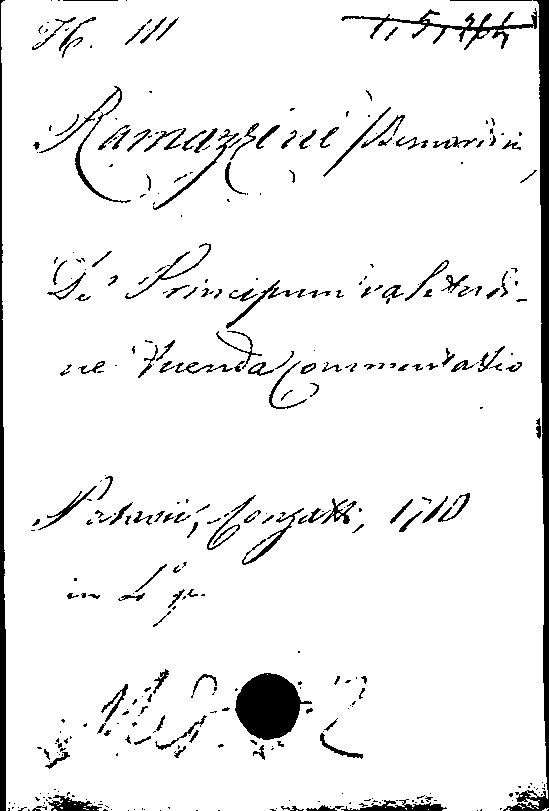 H. 111
Ramazzini Bernardini,
De Principum valetudi-
ne tuenda Commentatio
Patavii, Conzatti, 1710
in 4°